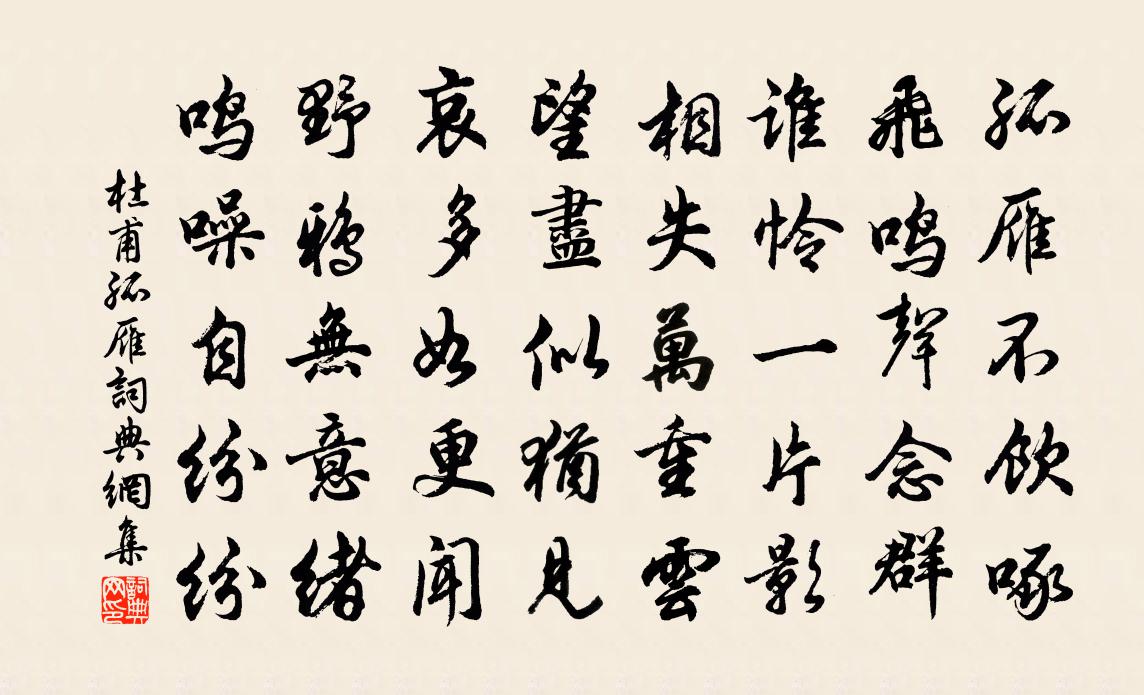 孤雁不飲啄
飛鳴聲念群
誰憐一片影
相失萬重雲
望盡似猶見
哀多如更聞
野鴉無意緒
鳴噪自紛紛
杜甫孤雁詞典網集
詞典網印